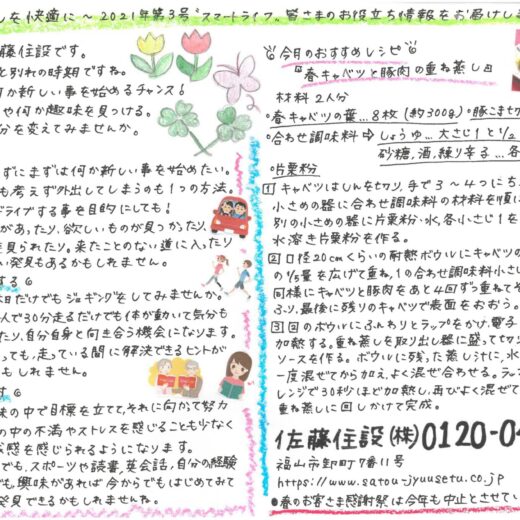 しを快適に〜2021年第3号"スマートライフ"皆さまのお役立ち情報をお届けしま
藤住設です。
と別れの時期ですね。
何か新しい事を始めるチャンス!
や何か趣味を見つける。
分を変えてみませんか。
ずにまずは何か新しい事を始めたい。
も考えず外出してしまうのも1つの方法。
ドライブする事を目的にしても!
があったり、欲しいものが見つかったり、
を見られたり。来たことのない道に入ったり
い発見もあるかもしれません。
する
日だけでもジョギングをしてみませんか。
人で30分走るだけでも体が動いて気分も
たり、自分自身と向き合う機会になります。
っても、走っている間に解決できるヒントが
もしれません。
す
味の中で目標を立て、それに向かって努力
の中の不満やストレスを感じることも少なく
感を感じられるようになります。
でも、スポーツや読書、英会話、自分の経験
でも、興味があれば今からでもはじめてみて
発見できるかもしれませんね。
今月のおすすめレシピ
『春キャベツと豚肉の重ね蒸し』
材料 2人分
・春キャベツの葉…8枚(約300g)・豚こま切
・合わせ調味料⇒しょうゆ…大さじ1と1/2
砂糖、酒、練り辛子…各
・片栗粉
1 キャベツはしんを切り、手で3〜4つにち
小さめの器に合わせ調味料の材料を順に
別の小さめの器に片栗粉・水、各小さじ1を
水溶き片栗粉を作る。
2 口径20cmくらいの耐熱ボウルにキャベツの
の1/5量を広げて重ね、1の合わせ調味料小さじ
同様にキャベツと豚肉をあと4回ずつ重ねて
ふり、最後に残りのキャベツで表面をおおう。
3 2のボウルにふんわりとラップをかけ、電子
加熱する。重ね蒸しを取り出し器に盛って切
ソースを作る。ボウルに残った蒸し汁に、水
一度混ぜてから加え、よく混ぜ合わせる。ラ
レンジで30秒ほど加熱し、再びよく混ぜて
重ね蒸しに回しかけて完成。
佐藤住設(株)0120-0
福山市卸町7番11号
https://www.satou-jyuusetu.co.jp
●春のお客さま感謝祭は今年も中止とさせていた